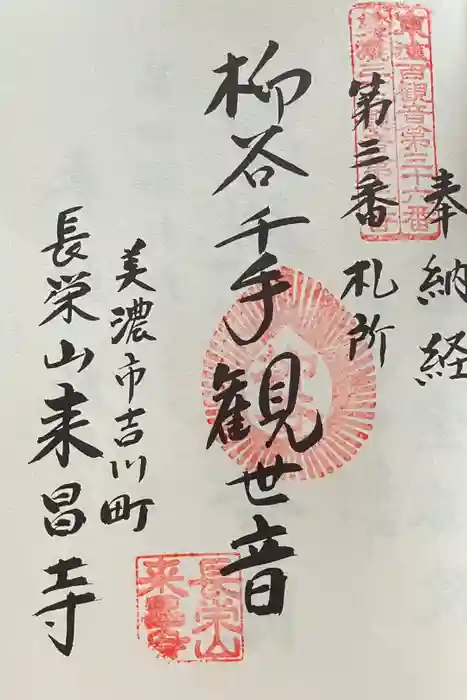 奉納経
第三番札所
柳谷千手観世音
美濃市吉川町
長栄山来昌寺
東海百観音第三十六番
長栄山
来昌寺